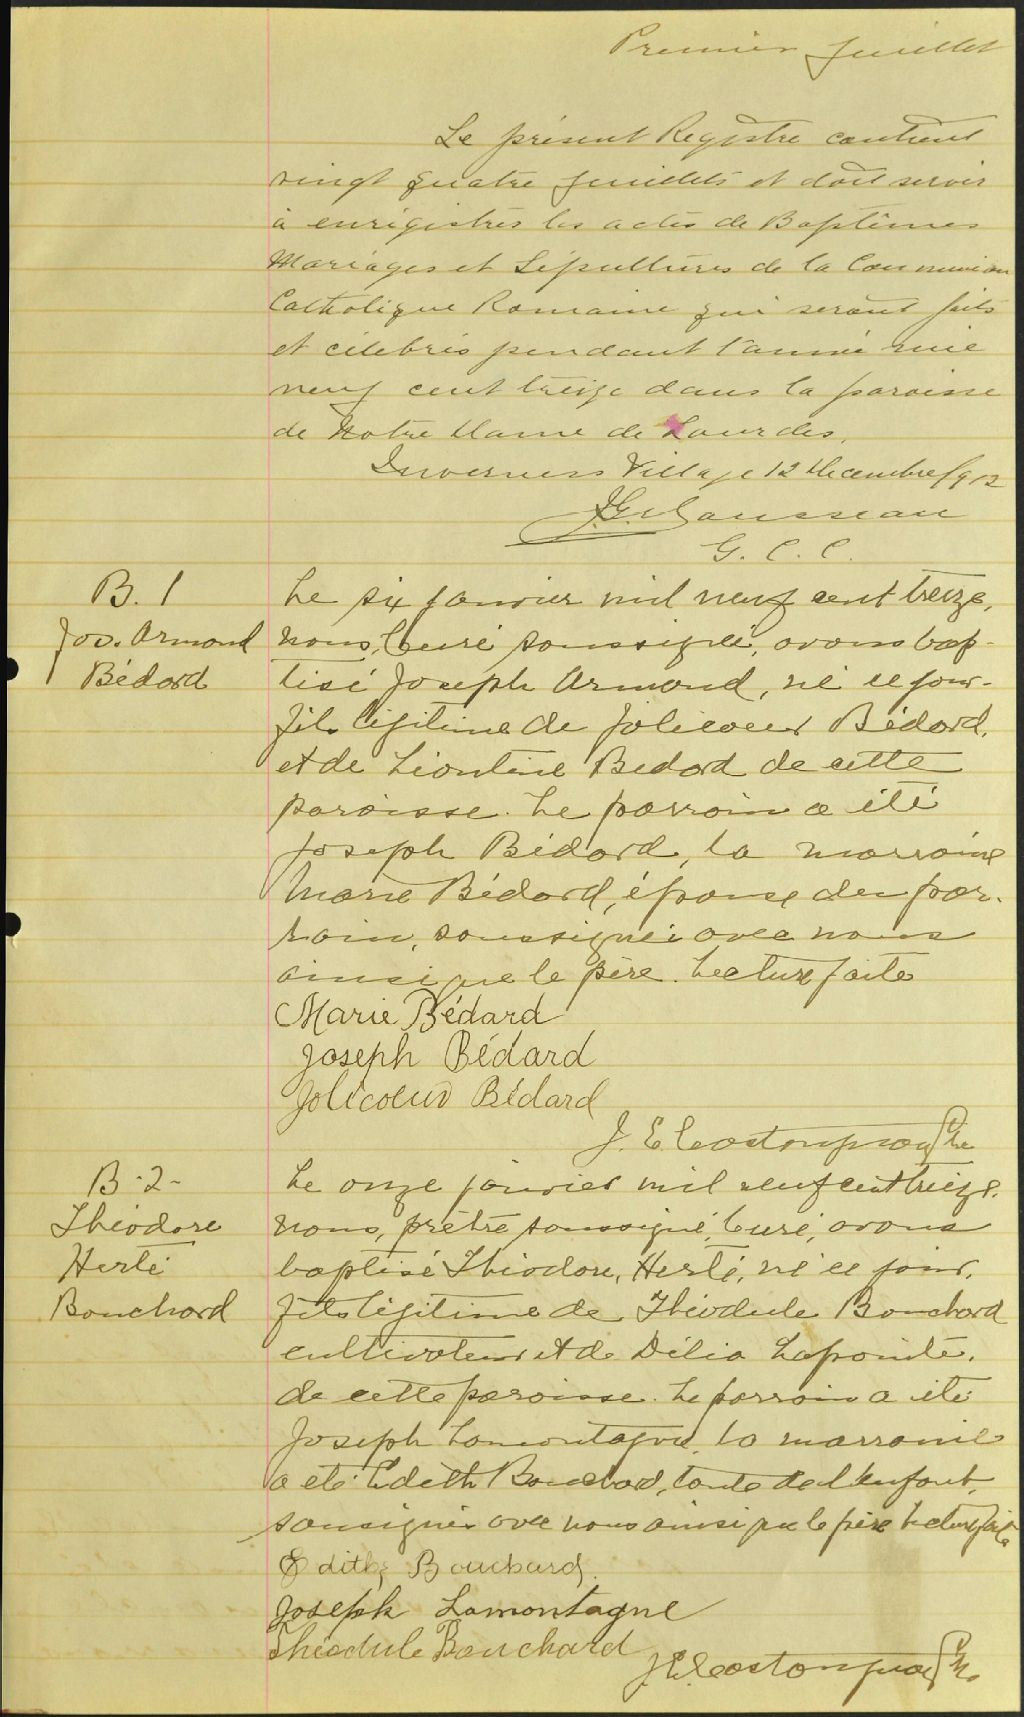 Premier feuillet
Le présent Registre contient
vingt quatre feuillets et doit servir
à enregistrer les actes de Baptêmes
Mariages et Sépultures de la Communion
Catholique Romaine qui seront faits
et célébrés pendant l'année mil
neuf cent treize dans la paroisse
de Notre Dame de Lourdes.
Inverness Village 12 Decembre 1912
G. C. C.
B. 1
Jos. Armand
Bédard
Le six janvier mil neuf cent treize,
nous, Curé soussigné, avons bap-
tisé Joseph Armand, né ce jour.
fils légitime de Jolicoeur Bédard,
et de Léontine Bedard de cette
paroisse. Le parrain a été
Joseph Bédard, la marraine
Marie Bédard, épouse du par-
rain, soussignés avec nous
ainsi que le père. Lecture faite
Marie Bédard
Joseph Bédard
Jolicoeur Bédard
J. E. Castonguay Ptre
B-2-
Théodore
Herté
Bouchard
Le onze janvier mil neuf cent treize.
nous, prêtre soussigné, Curé, avons
baptisé Théodore, Herté, né ce jour,
fils légitime de Théodule Bouchard
cultivateur et de Délia Lapointe.
de cette paroisse. Le parrain a été
Joseph Lamontagne, la marraine
a été Edith Bouchard, tante de l'enfant,
sousignés avec nous ainsi que le père Lecture faite
Edith Bouchard.
Joseph Lamontagne
Théodule Bouchard
J. E. Castonguay Ptre